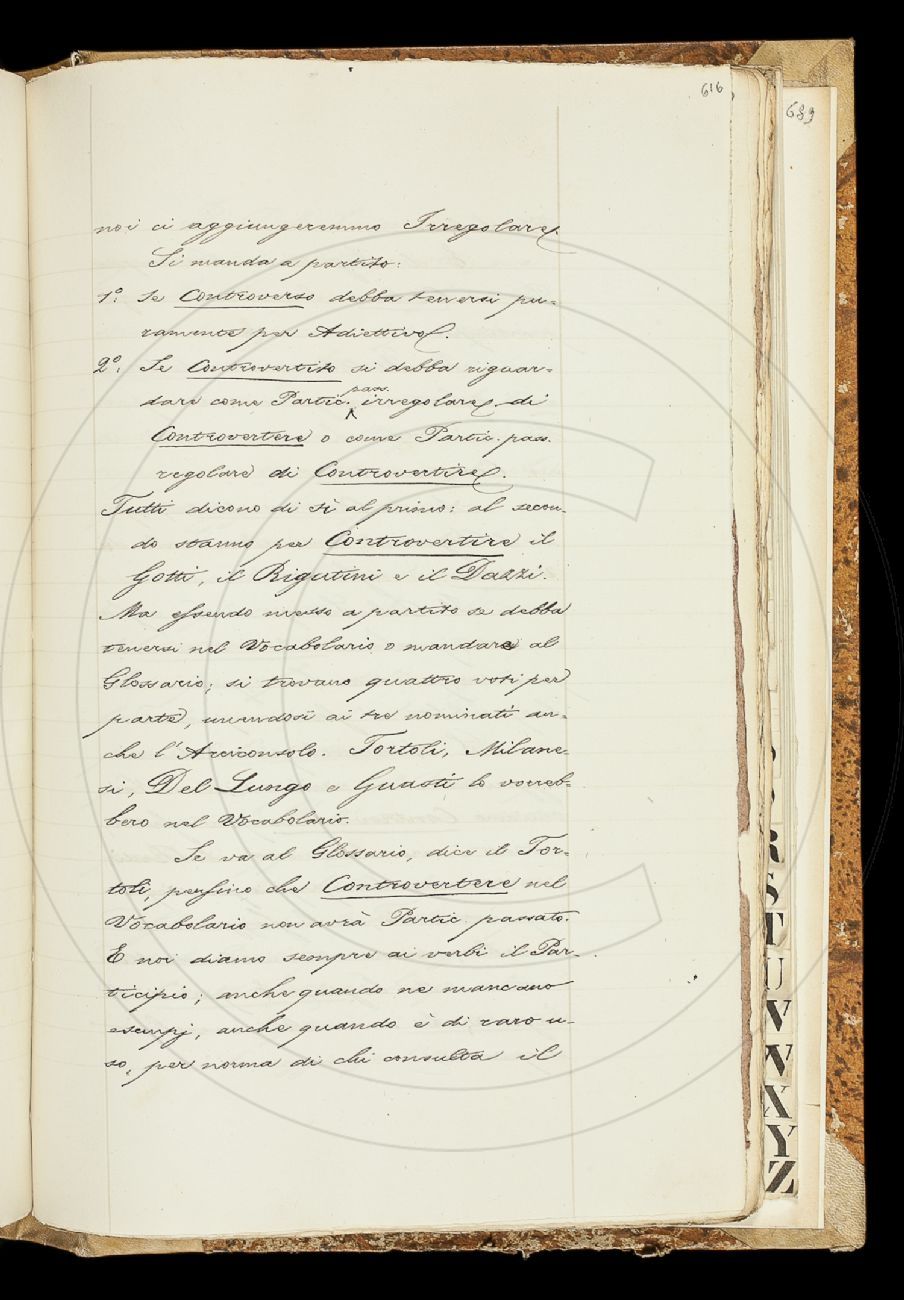 616
689
noi ci aggiungeremmo Irregolare.
Si manda a partito:
1º: Se Controverso debba tenersi pu-
ramente per Adiettivo.
2º: Se Controvertito si debba riguar-
dare come Partic. pass. irregolare di
Controvertere o come Partic. pass.
regolare di Controvertire.
Tutti dicono di sì al primo: al secon-
do stanno per Controvertire il
Gotti, il Rigutini e il Dazzi.
Ma essendo messo a partito se debba
tenersi nel Vocabolario o mandare al
Glossario; si trovano quattro voti per
parte, unendosi ai tre nominati an-
che l'Arciconsolo. Tortoli, Milane-
si, Del Lungo e Guasti lo vorreb-
bero nel Vocabolario.
Se va al Glossario, dice il Tor-
toli, perfino che Controvertere nel
Vocabolario non avrà Partic. passato.
E noi diamo sempre ai verbi il Par-
ticipio; anche quando ne mancano
esempj, anche quando è di raro u-
so, per norma di chi consulta il
R
S
T
U
V
W
X
Y
Z